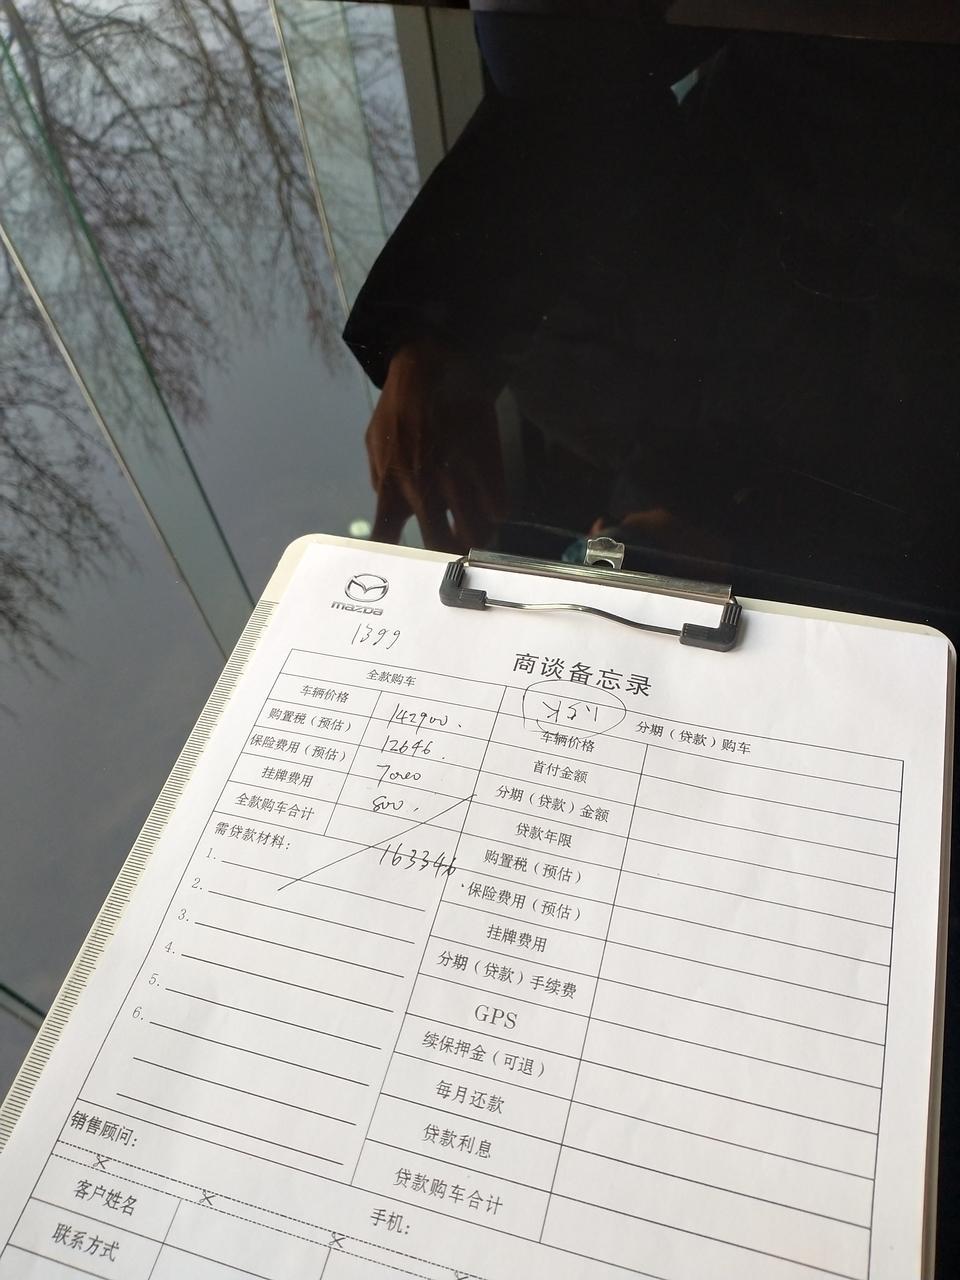 mazda
1399
商谈备忘录
全款购车
车辆价格 142900.
购置税（预估） 12646.
保险费用（预估） 7000
挂牌费用 800.
全款购车合计 163346.
需贷款材料：
1.
2.
3.
4.
5.
6.
销售顾问：
分期（贷款）购车
车辆价格
首付金额
分期（贷款）金额
贷款年限
购置税（预估）
保险费用（预估）
挂牌费用
分期（贷款）手续费
GPS
续保押金（可退）
每月还款
贷款利息
贷款购车合计
手机：
客户姓名
联系方式